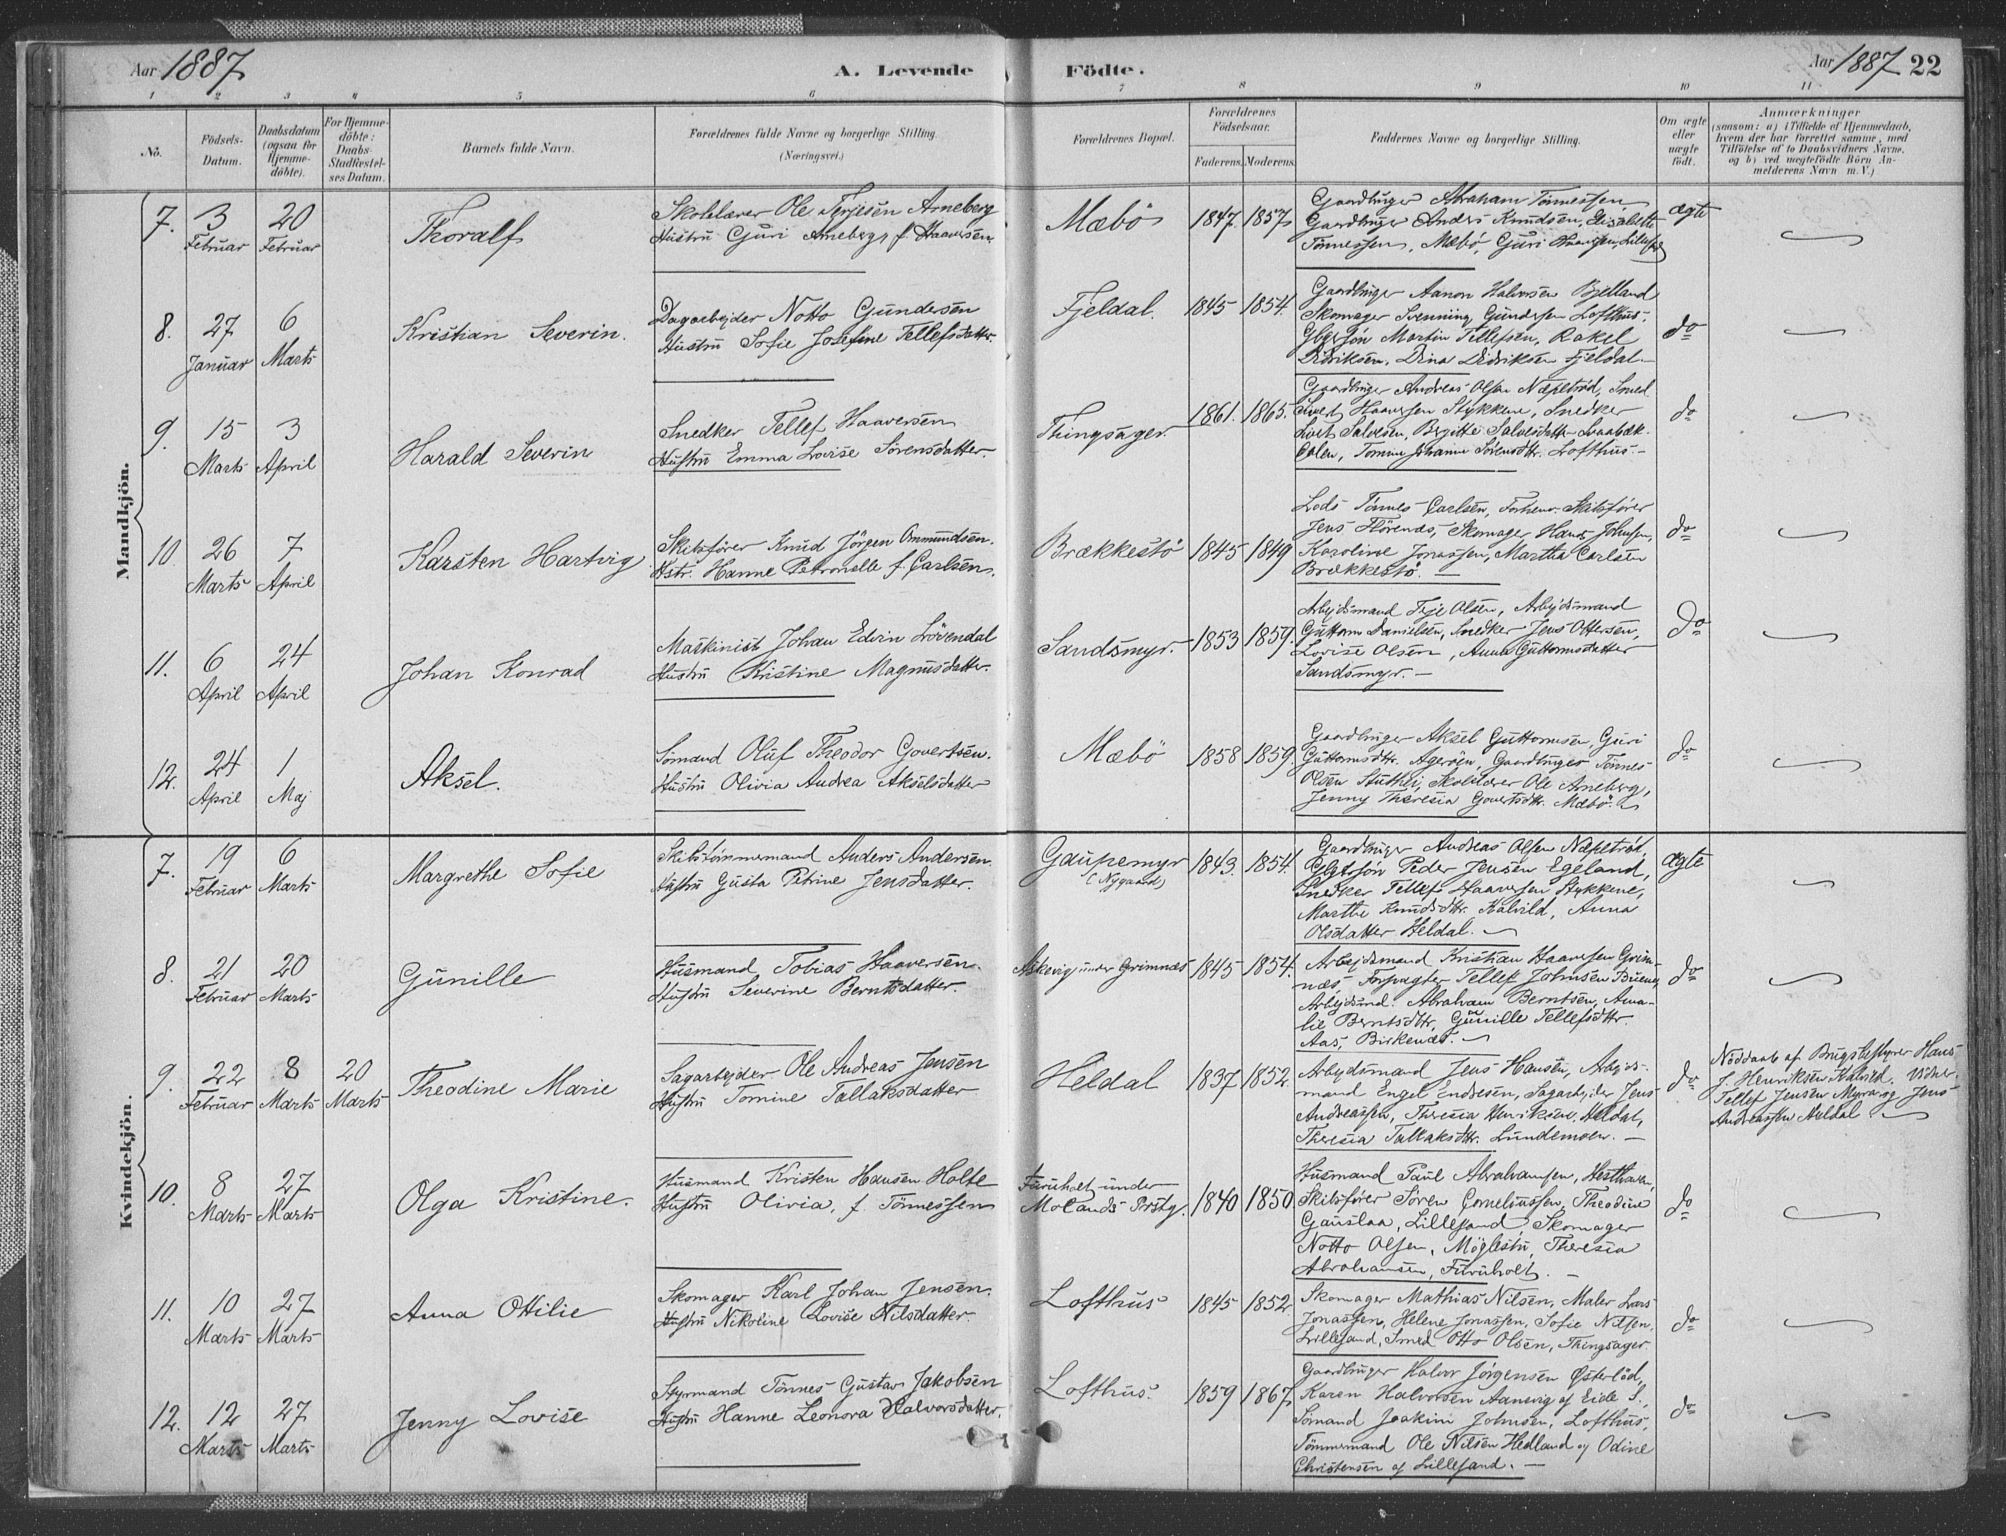 Aar 1887 A. Levende Födte. Aar 1887 22
1 2 3 4 5 6 7 8 9 10 11
No.
Födsels-Datum.
Daabsdatum (ogsaa for Hjemme-döbte).
For Hjemme-döbte: Daabs-Stadfæstel-ses Datum.
Barnets fulde Navn.
Forældrenes fulde Navne og borgerlige Stilling.
(Næringsvei.)
Forældrenes Bopæl.
Forældrenes Födselsaar.
Faderens. Moderens.
Faddernes Navne og borgerlige Stilling.
Om ægte eller uægte födt.
Anmærkninger
(saasom: a) i Tilfælde af Hjemmedaab,
hvem der har forrettet samme, med
Tilföielse af to Daabsvidners Navne.
og b) ved uægtefödte Börn An-
melderens Navn m. V.)
Mandkjön.
7. 3 Februar 20 Februar
Thoralf
Skolelærer Ole Terjesen Arneberg
Hustru Guri Arneberg, f. Haaversen
Mæbö 1847. 1857
Gaardbruger Abraham Tönnessen,
Gaardbruger Anders Knudsen, Elisabeth
Tönnessen, Mæbö, Guri Haaversen, Lillesand
ægte
8. 27 Januar 6 Marts
Kristian Severin.
Dagarbejder Notto Gundersen
Hustru Sofie Josefine Tellefsdatter.
Fjeldal. 1845 1854.
Gaardbruger Aanon Halvorsen Bjelland
Skomager Svenning Gundersen Lofthus.
Gbrsøn Martin Tellefsen, Rakel
Didriksen, Dina Didriksen Fjeldal.
do
9. 15 Marts 3 April
Harald Severin
Snedker Tellef Haaversen
Hustru Emma Lovise Sörensdatter.
Thingsager. 1861. 1865.
Gaardbruger Andreas Olsen Næpstad, Smed
Haaversen Stykkene, Snedker
Salvesen, Birgitte Salvesdatter Svaabæk.
Lofthus.
do
10. 26 Marts 7 April
Karsten Hartvig
Skibsfører Knud Jörgen Ommundsen.
Hstr. Hanne Petronelle f. Carlsen.
Brækkestö 1845 1849
Lods Tönnes Carlsen, Forhenv. Skibsfører
Jens Flörenæs, Skomager Hans Johnsen,
Karoline Jonassen, Martha Carlsen
Brækkestö.
do
11. 6 April 24 April
Johan Konrad
Maskinist Johan Edvin Lövendal
Hustru Kristine Magnusdatter.
Sandsmyr. 1853 1859.
Arbejdsmand Terje Olsen, Arbejdsmand
Guttorm Danielsen, Snedker Jens Ottersen,
Lovise Olsen, Anna Guttormsdatter
Sandsmyr.
do
12. 24 April 1 Maj
Aksel.
Sömand Oluf Theodor Govertsen.
Hustru Olivia Andrea Akselsdatter
Mæbö 1858 1859.
Gaardbruger Aksel Guttormsen, Guri
Guttormsdtr. Ageröen, Gaardbruger Tönnes
Olsen Stuthei, Skolelærer Ole Arneberg,
Jenny Theresia Govertsdtr. Mæbö.
do
Kvindekjön.
7. 19 Februar 6 Marts
Margrethe Sofie
Skibstömmermand Anders Andersen.
Hustru Gusta Petrine Jensdatter.
Gaupemyr (Nygaard) 1843. 1854.
Gaardbruger Andreas Olsen Næpstad,
Gbrsjön Peder Jensen Egeland,
Snedker Tellef Haaversen Stykkene,
Marthe Knudsdtr. Kalvild, Anna
Olsdatter Heldal.
ægte
8. 21 Februar 20 Marts
Gunille
Husmand Tobias Haaversen.
Hustru Severine Berntsdatter.
Askevig under Grimnæs 1845 1854.
Arbejdsmand Kristian Haaversen Grim-
næs, Forpagter Tellef Johnsen Buene,
Arbejdsmd. Abraham Berntsen, Ama-
lie Berntsdtr, Gunille Tellefsdtr.
Aas, Birkenæs.
do
9. 22 Februar 8 Marts 20 Marts
Theodine Marie
Sagarbejder Ole Andreas Jensen
Hustru Tomine Tallaksdatter
Heldal 1837 1852.
Arbejdsmand Jens Hansen, Arbejds-
mand Engel Endresen, Sagarbejder Jens
Andreassen, Theresia Henriksen, Heldal,
Theresia Tallaksdtr. Lundemoen.
do
Nöddaab af Brugsbestyrer Hans
J. Henriksen Kalvild. Vidner:
Tellef Jensen Myra og Jens
Andreassen Heldal
10. 8 Marts 27 Marts
Olga Kristine.
Husmand Kristen Hansen Holte
Hustru Olivia, f. Tönnessen
Furuholt under
Molands Prstg. 1840 1850.
Husmand Paul Abrahamsen, Hesthaven,
Skibsfører Sören Corneliussen, Theodine
Gauslaa, Lillesand Skomager
Notto Olsen, Möglestu, Theresia
Abrahamsen, Furuholt.
do
11. 10 Marts 27 Marts
Anna Ottilie
Skomager Karl Johan Jensen.
Hustru Nikoline Lovise Nilsdatter.
Lofthus 1845 1852
Skomager Mathias Nilsen, Maler Lars
Jonassen, Helene Jonassen, Sofie Nilsen,
Lillesand, Smed Otto Olsen, Thingsager.
do
12. 12 Marts 27 Marts
Jenny Lovise
Styrmand Tönnes Gustav Jakobsen
Hustru Hanne Leonora Halvorsdatter.
Lofthus 1859 1867
Gaardbruger Halvor Jörgensen Österlöd,
Karen Halvorsen Aanevig af Eide S.,
Sömand Joakim Johnsen, Lofthus,
Tömmermand Ole Nilsen Hedland og Odine
Christensen af Lillesand.
do